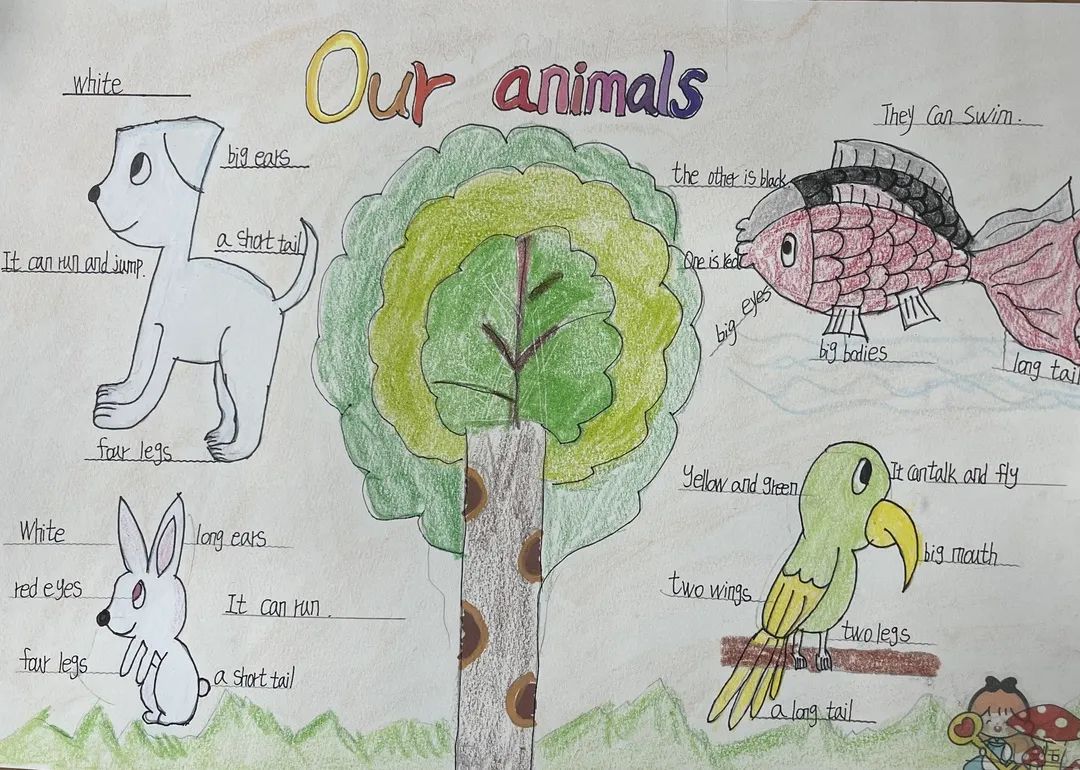 Our animals
white
big ears
a short tail
It can run and jump.
four legs
White
long ears
red eyes
It can run.
four legs
a short tail
They Can Swim.
the other is black
One is red
big eyes
big bodies
long tail
Yellow and green
It can talk and fly
big mouth
two wings
two legs
a long tail